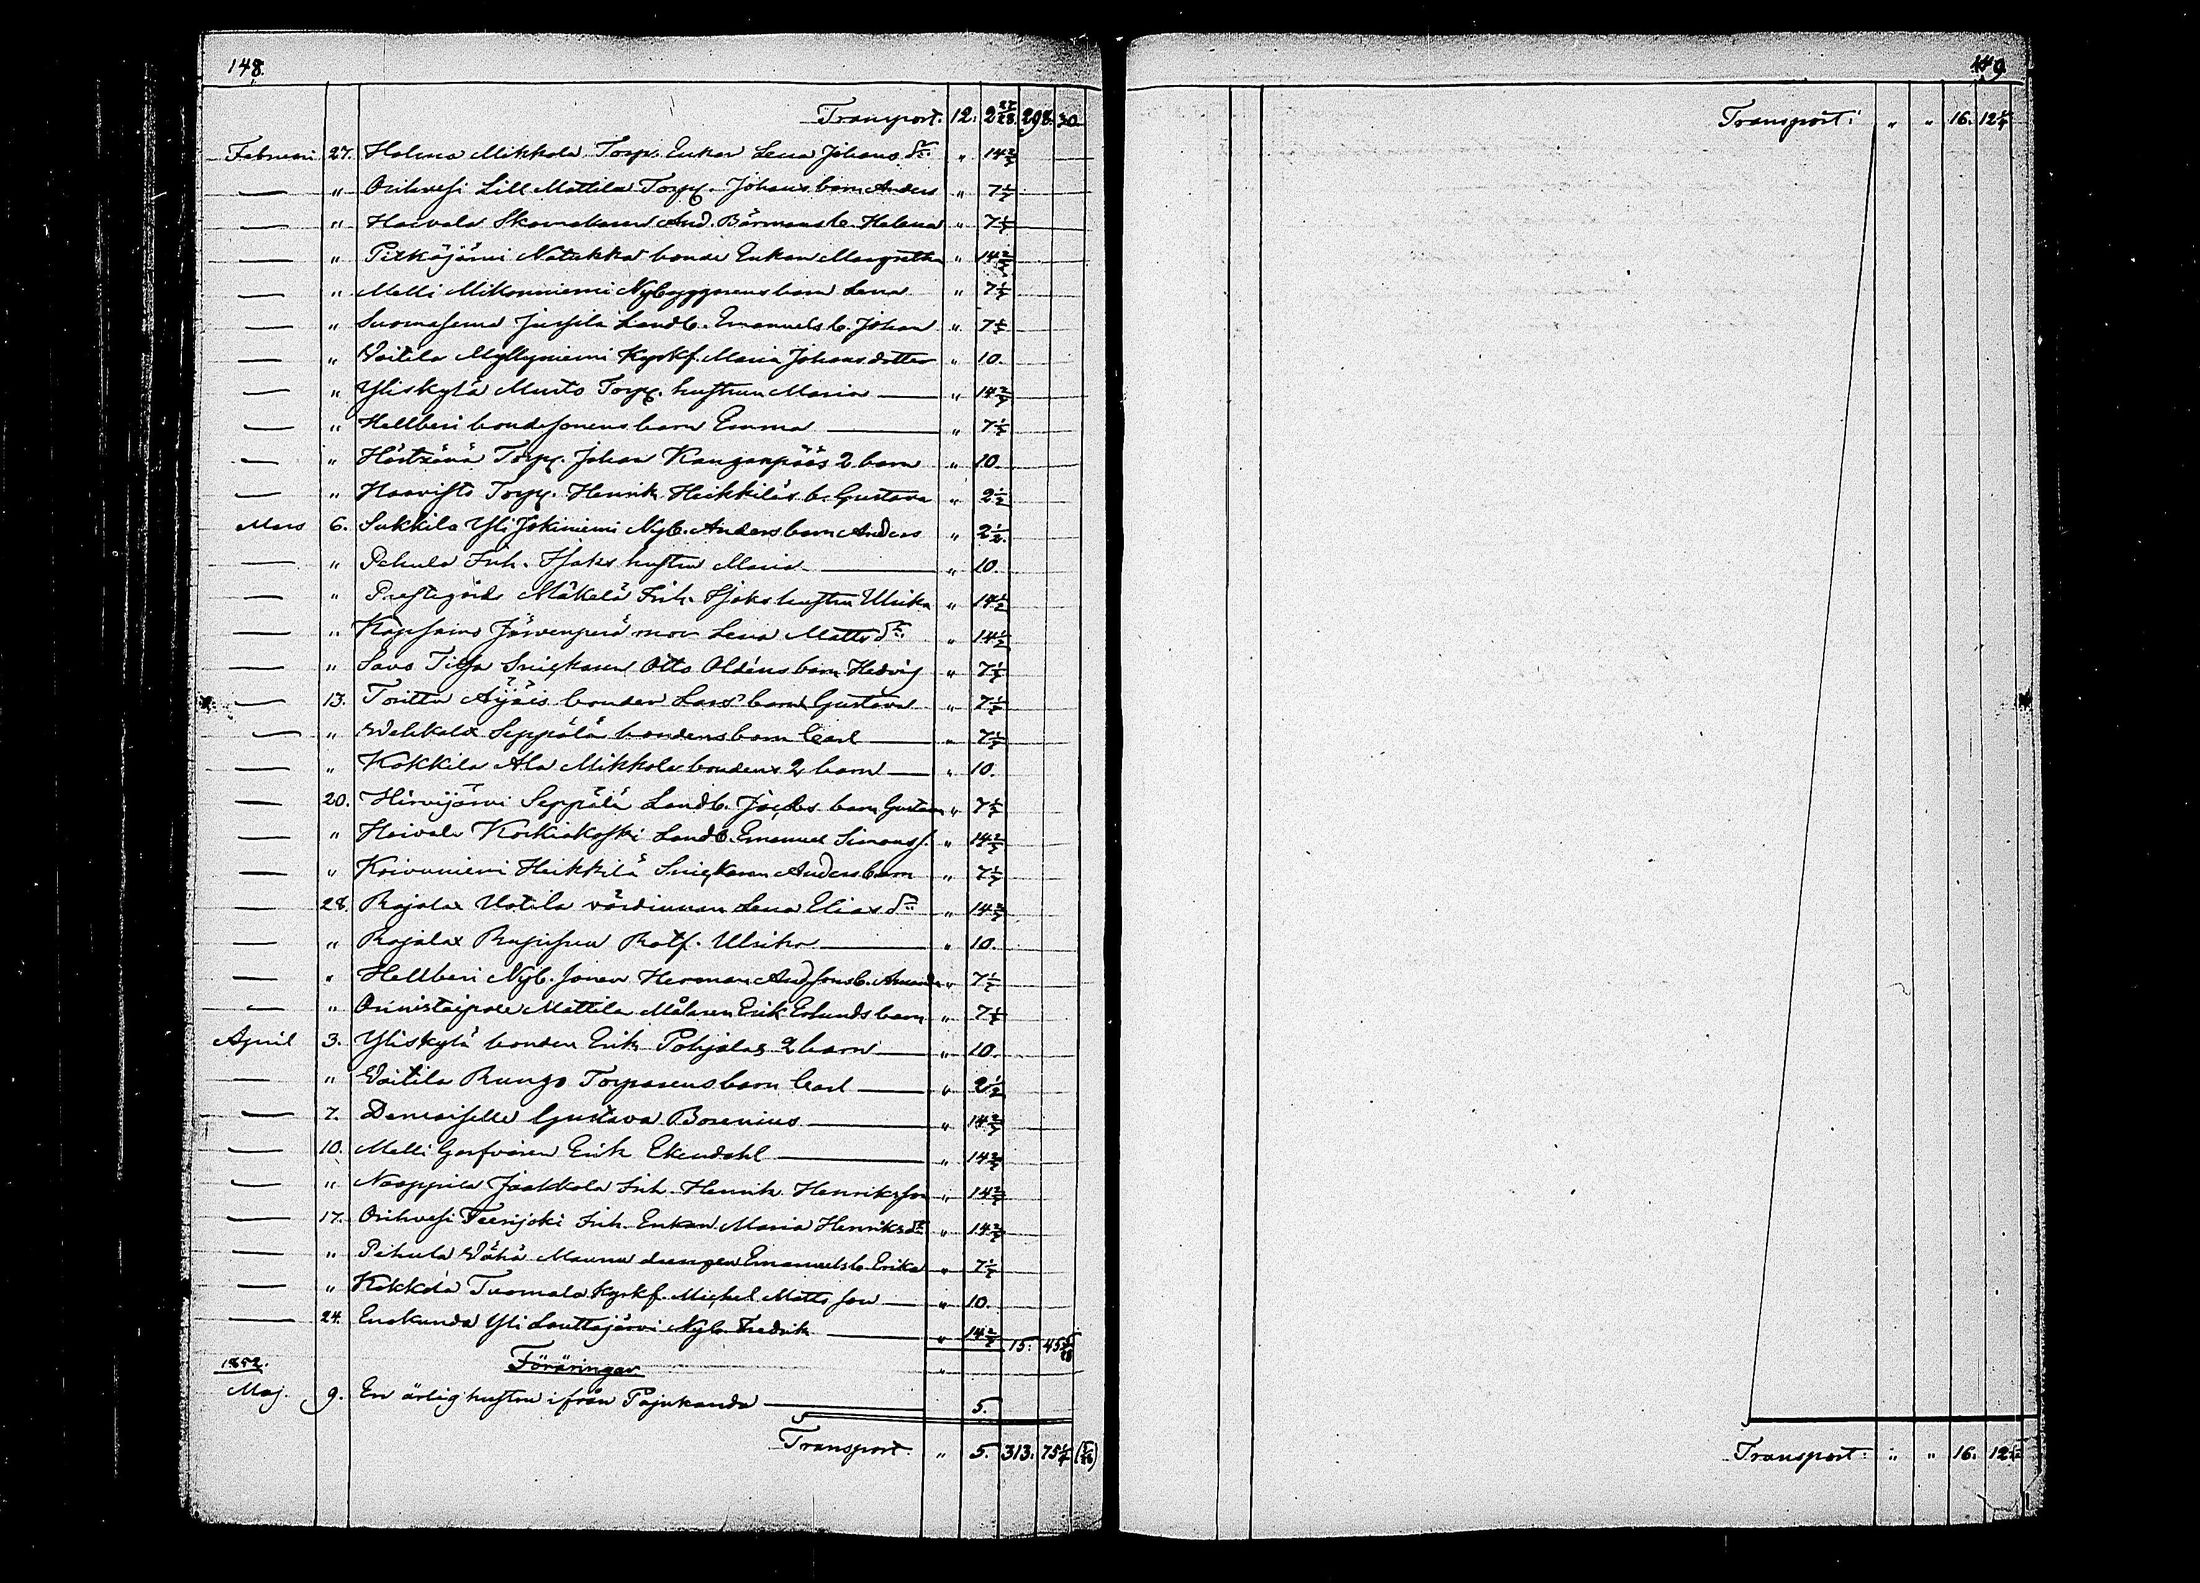 148.
Transport. 12. 2 27/28. 298. 30
Februari 27. Holma Mikkola Torp. Enkan Lena Johans dr. " 14 2/7
— " Orihvesi Lill Mattila Torp. Johans barn Anders " 7 1/7
— " Haivala Skomakaren And. Bärmans b. Helena " 7 1/7
— " Pitkäjärvi Natukka bonde Enkan Margretha " 14 2/7
— " Melli Mikonniemi Nybyggarens barn Lena " 7 1/7
— " Suomasema Jussila Landb. Emanuels b. Johan " 7 1/7
— " Voitila Myllyniemi Kyrkf. Maria Johans dotter " 10.
— " Yliskylä Muito Torp. hustrun Maria — " 14 2/7
— " Hellberi bondesonens barn Emma — " 7 1/7
— " Torp. Johan Kanganpääs 2 barn " 10.
— " Haavisto Torp. Henrik Heikkiläs b. Gustava " 2 1/2
Mars 6. Sukkila Yli Jokiniemi Nyb. Anders barn Anders " 2 1/2.
— " Pehula Inh. Isaks hustru Maria — " 10.
— " Prestegårds Mäkelä Inh. Isaks hustru Ulrika " 14 1/2
— " Järvenperä mor Lena Matts dr. " 14 1/2
— " Savo Tilsa Snickaren Otto Oldéns barn Hedvig " 7 1/7
— 13. Toritta Äijäis bonden Lars' barn Gustava " 7 1/7
— " Wehkala Seppälä bondens barn Carl — " 7 1/7
— " Kokkila Ala Mikkola bondens 2 barn — " 10.
— 20. Hirvijärvi Seppälä Landb. Jacobs barn Gustava " 7 1/7
— " Haivala Koskiakoski Landb. Emanuel Simonss. " 14 2/7
— " Koivuniemi Heikkilä Snickaren Anders barn " 7 1/7
— 28. Rajala Uotila värdinnan Lena Elias dr. " 14 2/7
— " Rajala Rotf. Ulrika — " 10.
— " Hellberi Nyb. sonen Herman Andssons b. Amanda " 7 1/7
— " Orinistaipale Mattila Målaren Erik Erlunds barn " 7 1/7
April 3. Yliskylä bonden Erik Pohjalas 2 barn — " 10.
— " Voitila Rungo Torparens barn Carl — " 2 1/2
— 7. Demoiselle Gustava Borenius — " 14 2/7
— 10. Melli Garfvaren Erik Ekendahl — " 14 2/7
— " Naappila Jaakkola Inh. Henrik Henriksson " 14 2/7
— 17. Orihvesi Teerijoki Inh. Enkan Maria Henriksdr. " 14 2/7
— " Pehula Wähä Maunu drengen Emanuels b. Erika " 7 1/7
— " Kokkola Tuomala Kyrkf. Michel Matts son — " 10.
— 24. Enokunda Yli Lauttajärvi Nyb. Fredrik — " 14 2/7 15. 45 5/28
1852. Föräringar "
Maj. 9. En ärlig hustru ifrån Pajukanda — 5.
Transport. " 5. 313. 75 1/7 (5/28)
149
Transport: " " 16. 12 1/7
Transport: " " 16. 12 1/7